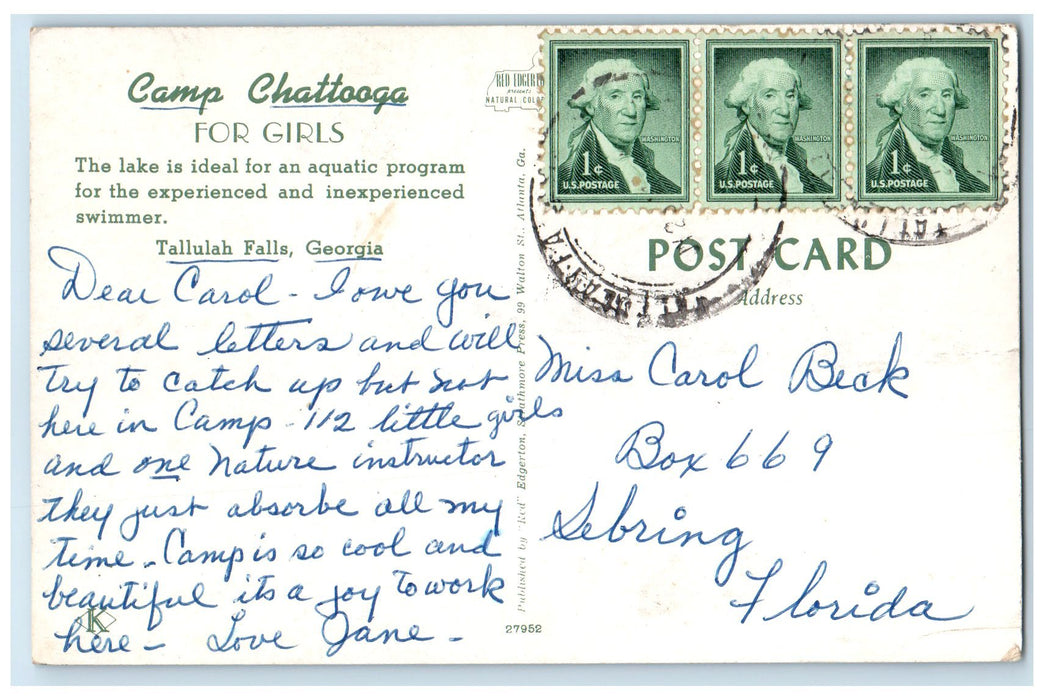 Camp Chattooga
FOR GIRLS
The lake is ideal for an aquatic program
for the experienced and inexperienced
swimmer.
Tallulah Falls, Georgia
Dear Carol - I owe you
several letters and will
try to catch up but not
here in Camp - 112 little girls
and one Nature instructor
they just absorbe all my
time - Camp is so cool and
beautiful its a joy to work
here - Love Jane -
K
RED EDGERTON
presents
NATURAL COLOR
Published by "Red" Edgerton, Strathmore Press, 99 Walton St., Atlanta, Ga.
27952
WASHINGTON
1¢
U.S. POSTAGE
WASHINGTON
1¢
U.S. POSTAGE
WASHINGTON
1¢
U.S. POSTAGE
POST CARD
Address
Miss Carol Beck
Box 669
Sebring
Florida